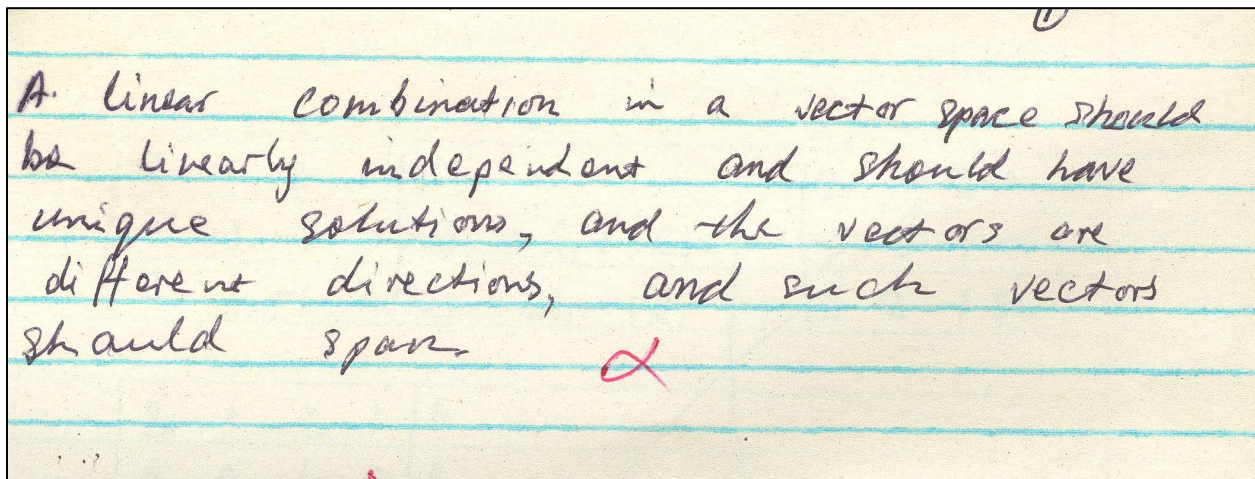 A. linear combination in a vector space should
be linearly independent and should have
unique solutions, and the vectors are
different directions, and such vectors
should span.